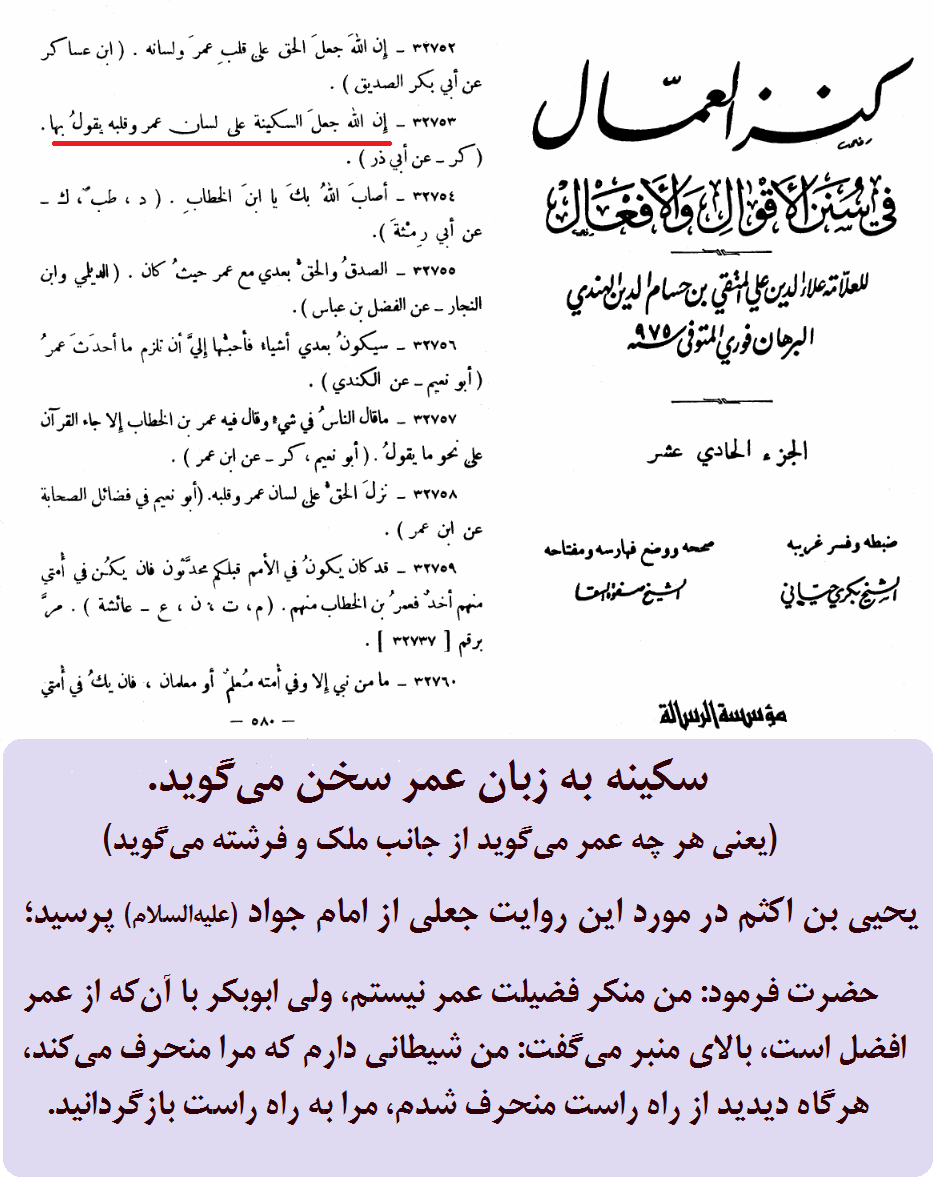 كنز العمال
في سنن الأقوال والأفعال
للعلامة علاء الدين علي المتقي بن حسام الدين الهندي
البرهان فوري المتوفى سنة ٩٧٥
الجزء الحادي عشر
ضبطه وفسر غريبه
الشيخ بكري حياني
صححه ووضع فهارسه ومفتاحه
الشيخ صفوة السقا
مؤسسة الرسالة
٣٢٧٥٢ – إن اللهَ جعلَ الحق على قلبِ عمرَ ولسانه . ( ابن عساكر
عن أبي بكر الصديق ) .
٣٢٧٥٣ – إن الله جعلَ السكينة على لسان عمر وقلبه يقولُ بها .
( كر – عن أبي ذر ) .
٣٢٧٥٤ – أصابَ اللهُ بكَ يا ابنَ الخطابِ . ( د ، طب ، ك –
عن أبي رِمْثةَ ) .
٣٢٧٥٥ – الصدقُ والحقُ بعدي مع عمر حيثُ كان . ( الديلمي وابن
النجار – عن الفضل بن عباس ) .
٣٢٧٥٦ – سيكونُ بعدي أشياء فأحبُّها إليَّ أن تلزم ما أحدَثَ عمرُ
( أبو نعيم – عن الكندي ) .
٣٢٧٥٧ – ماقال الناسُ في شيءٍ وقال فيه عمر بن الخطاب إلا جاء القرآن
على نحو ما يقولُ . ( أبو نعيم ، كر – عن ابن عمر ) .
٣٢٧٥٨ – نزلَ الحقُ على لسان عمر وقلبه. (أبو نعيم في فضائل الصحابة
عن ابن عمر ) .
٣٢٧٥٩ – قد كان يكونُ في الأمم قبلكم محدَّثون فان يكن في أمتي
منهم أحدٌ فعمرُ بن الخطاب منهم . ( م ، ت ، ن ، ع – عائشة ) . مرَّ
برقم [ ٣٢٧٣٧ ] .
٣٢٧٦٠ – ما من نبي إلا وفي أمته مُعلمٌ أو معلمان ، فان يكُ في أمتي
– ٥٨٠ –
سکینه به زبان عمر سخن می‌گوید.
(یعنی هر چه عمر می‌گوید از جانب ملک و فرشته می‌گوید)
یحیی بن اکثم در مورد این روایت جعلی از امام جواد (علیه‌السلام) پرسید؛
حضرت فرمود: من منکر فضیلت عمر نیستم، ولی ابوبکر با آن‌که از عمر
افضل است، بالای منبر می‌گفت: من شیطانی دارم که مرا منحرف می‌کند،
هرگاه دیدید از راه راست منحرف شدم، مرا به راه راست بازگردانید.